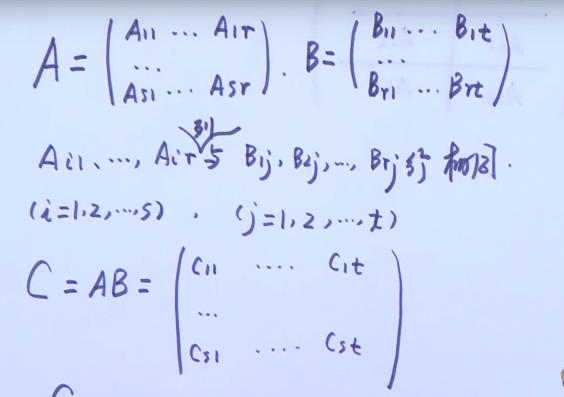 A = ( A11 ... A1r ... As1 ... Asr ) . B = ( B11 ... B1t ... Br1 ... Brt )
列
Ai1、..., Air 与 B1j, B2j, ..., Brj 行 相同.
(i=1,2,...,s) , (j=1,2,...,t)
C = AB = ( C11 .... C1t ... Cs1 .... Cst )